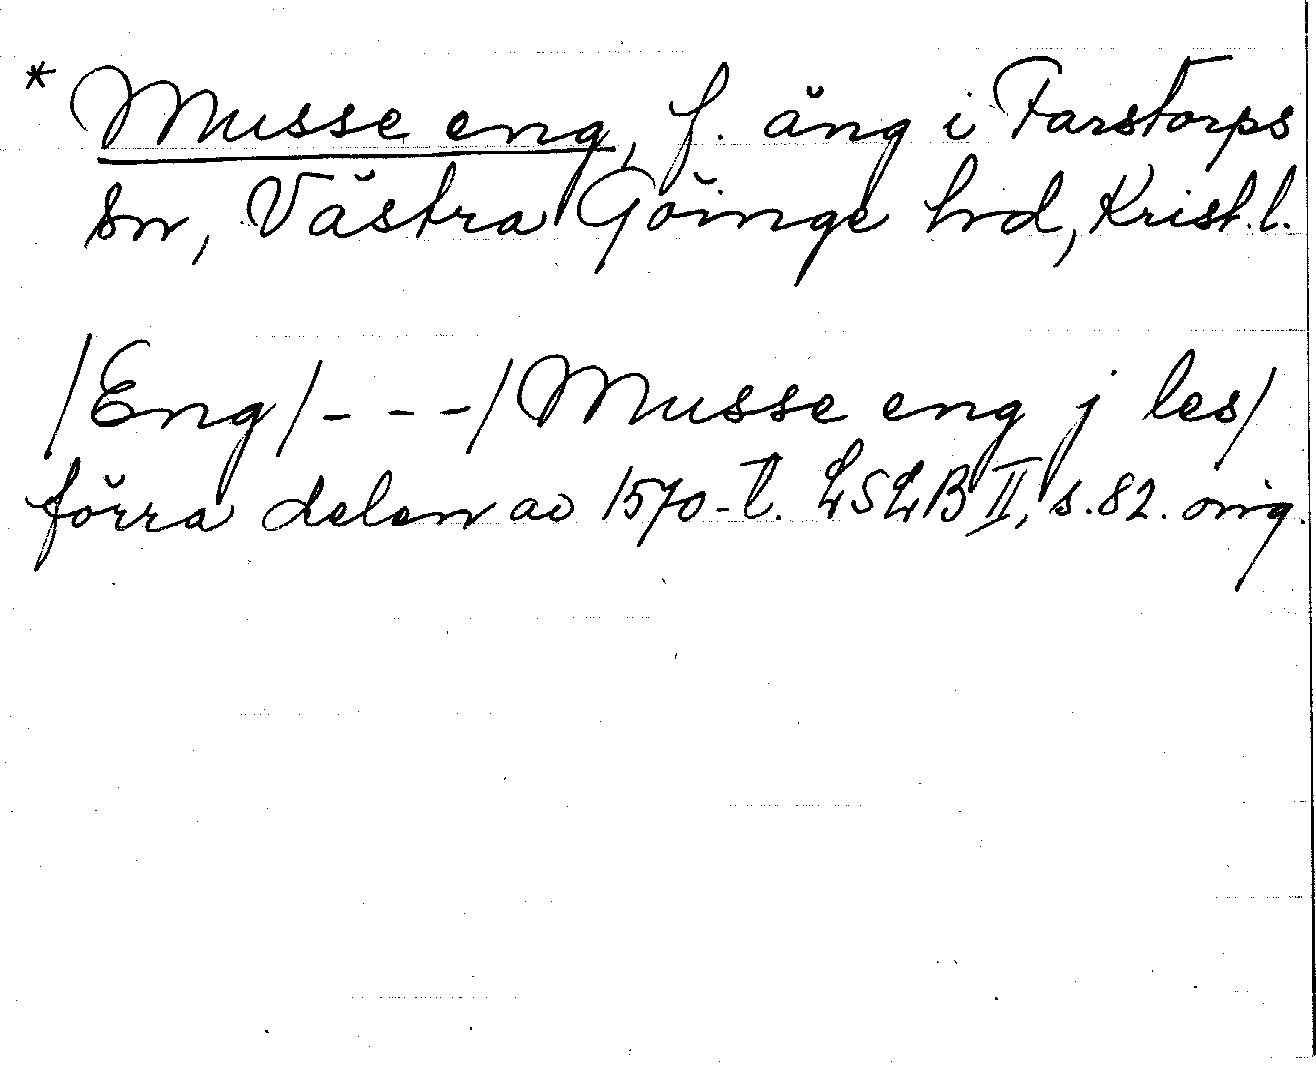 * Musse eng, f. äng i Farstorps
sn, Västra Göinge hd, Krist. l.
/Eng/ - - - / Musse eng j les/
förra delen av 1570-t. LSLB II, s. 82. orig.